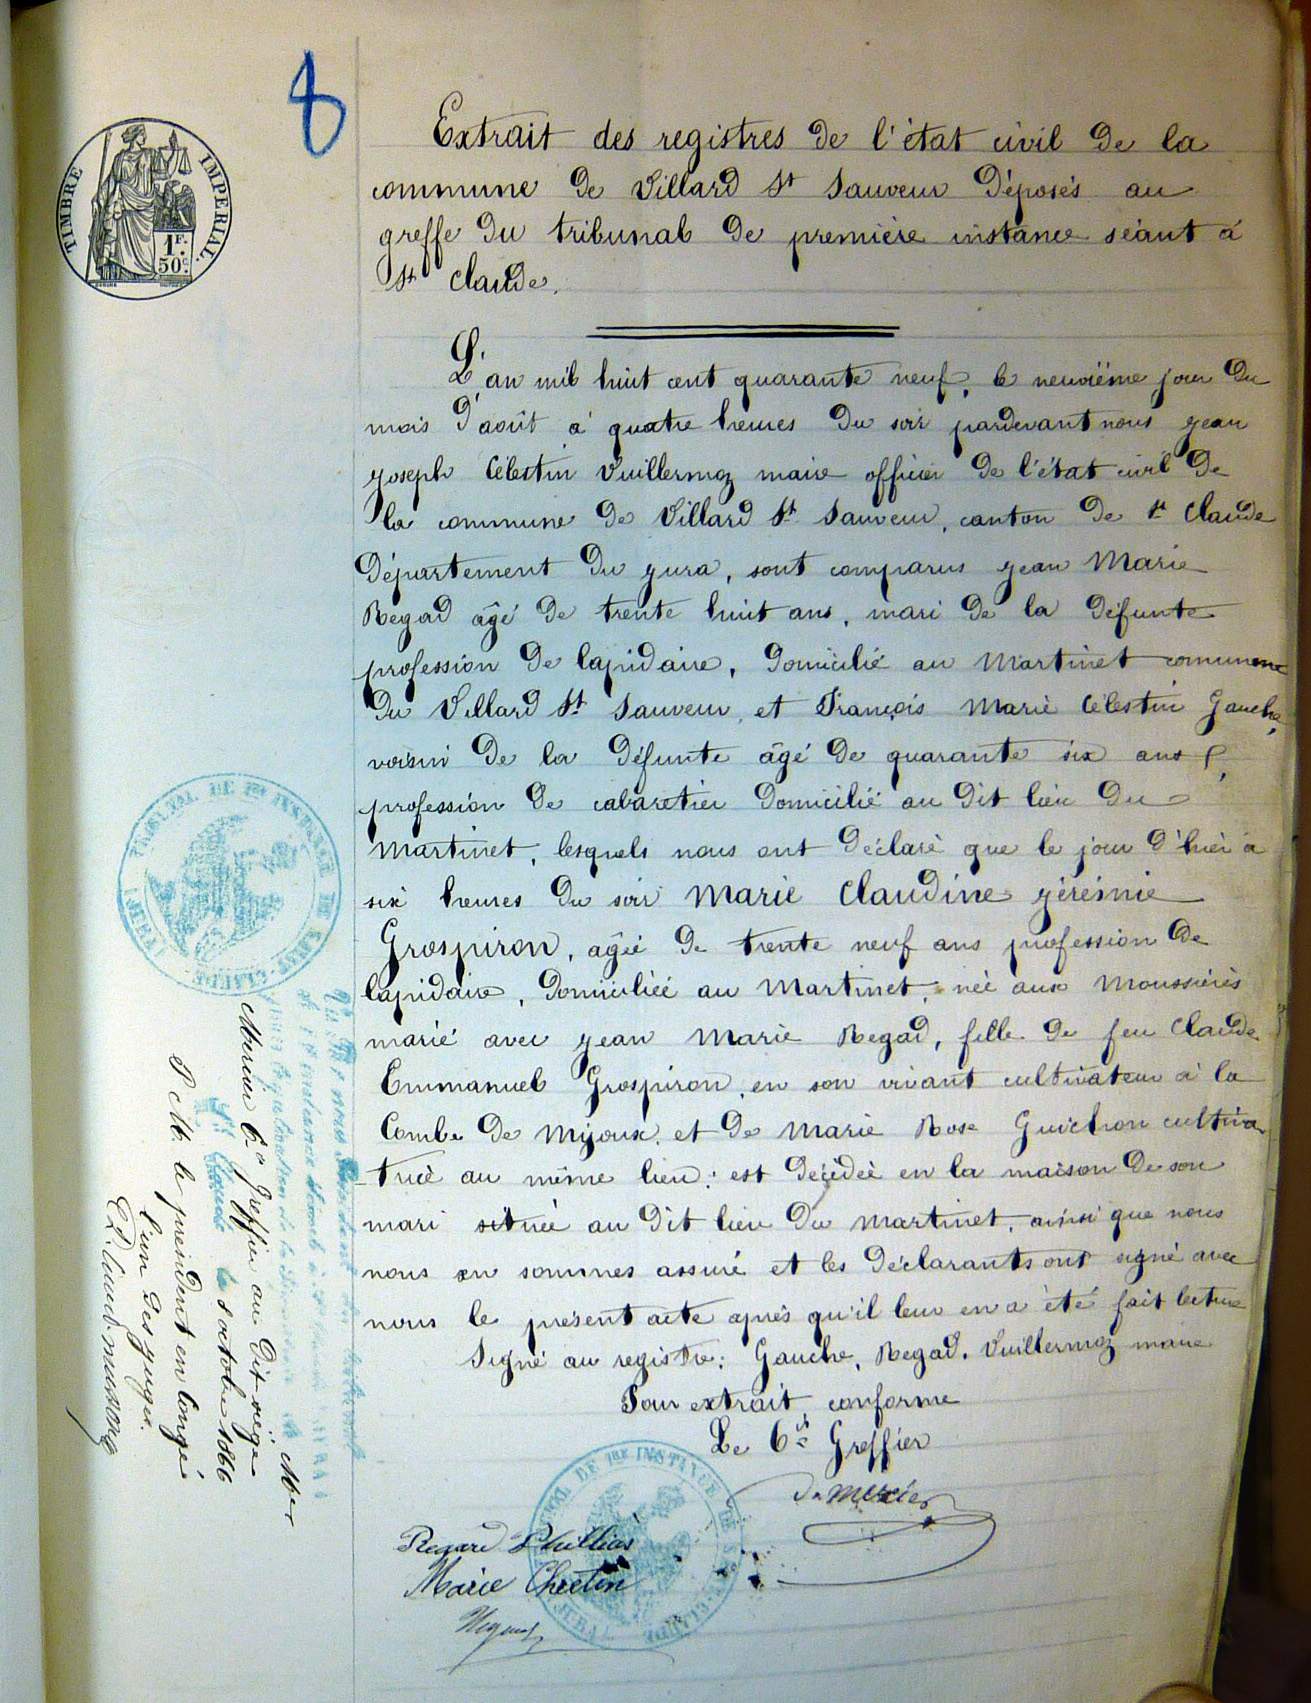 8
TIMBRE IMPERIAL.
1F.
50c.
Extrait des registres de l'état civil de la
commune de Villard St Sauveur déposés au
greffe du tribunal de première instance séant à
St Claude.
L'an mil huit cent quarante neuf, le neuvième jour du
mois d'août à quatre heures du soir pardevant nous jean
joseph Célestin Vuillermoz maire officier de l'état civil de
la commune de Villard St Sauveur, canton de St Claude
département du jura, sont comparus jean Marie
Regad âgé de trente huit ans, mari de la défunte
profession de lapidaire, domicilié au Martinet commune
du Villard St Sauveur, et François Marie Célestin Gauche,
voisin de la défunte âgé de quarante six ans
profession de cabaretier domicilié au dit lieu du
Martinet, lesquels nous ont déclaré que le jour d'hier à
six heures du soir Marie Claudine jérémie
Grospiron, agée de trente neuf ans profession de
lapidaire, domiciliée au Martinet, née aux Moussières
marié avec jean Marie Regad, fille de feu Claude
Emmanuel Grospiron, en son vivant cultivateur à la
Combe de Mijoux, et de Marie Rose Guichon cultiva
trice au même lieu: est décédée en la maison de son
mari située au dit lieu du Martinet, ainsi que nous
nous en sommes assuré et les déclarants ont signé avec
nous le présent acte après qu'il leur en a été fait lecture
Signé au registre: Gauche, Regad, Vuillermoz maire
Pour extrait conforme
Le Cis Greffier
TRIBUNAL DE 1RE INSTANCE DE SAINT-CLAUDE (JURA)
Mercier Cis Greffier au dit siège
St Claude le 8 octobre 1866
P. M. le président en congé
l'un des juges.
TRIBUNAL DE 1RE INSTANCE DE ST-CLAUDE (JURA)
Marie